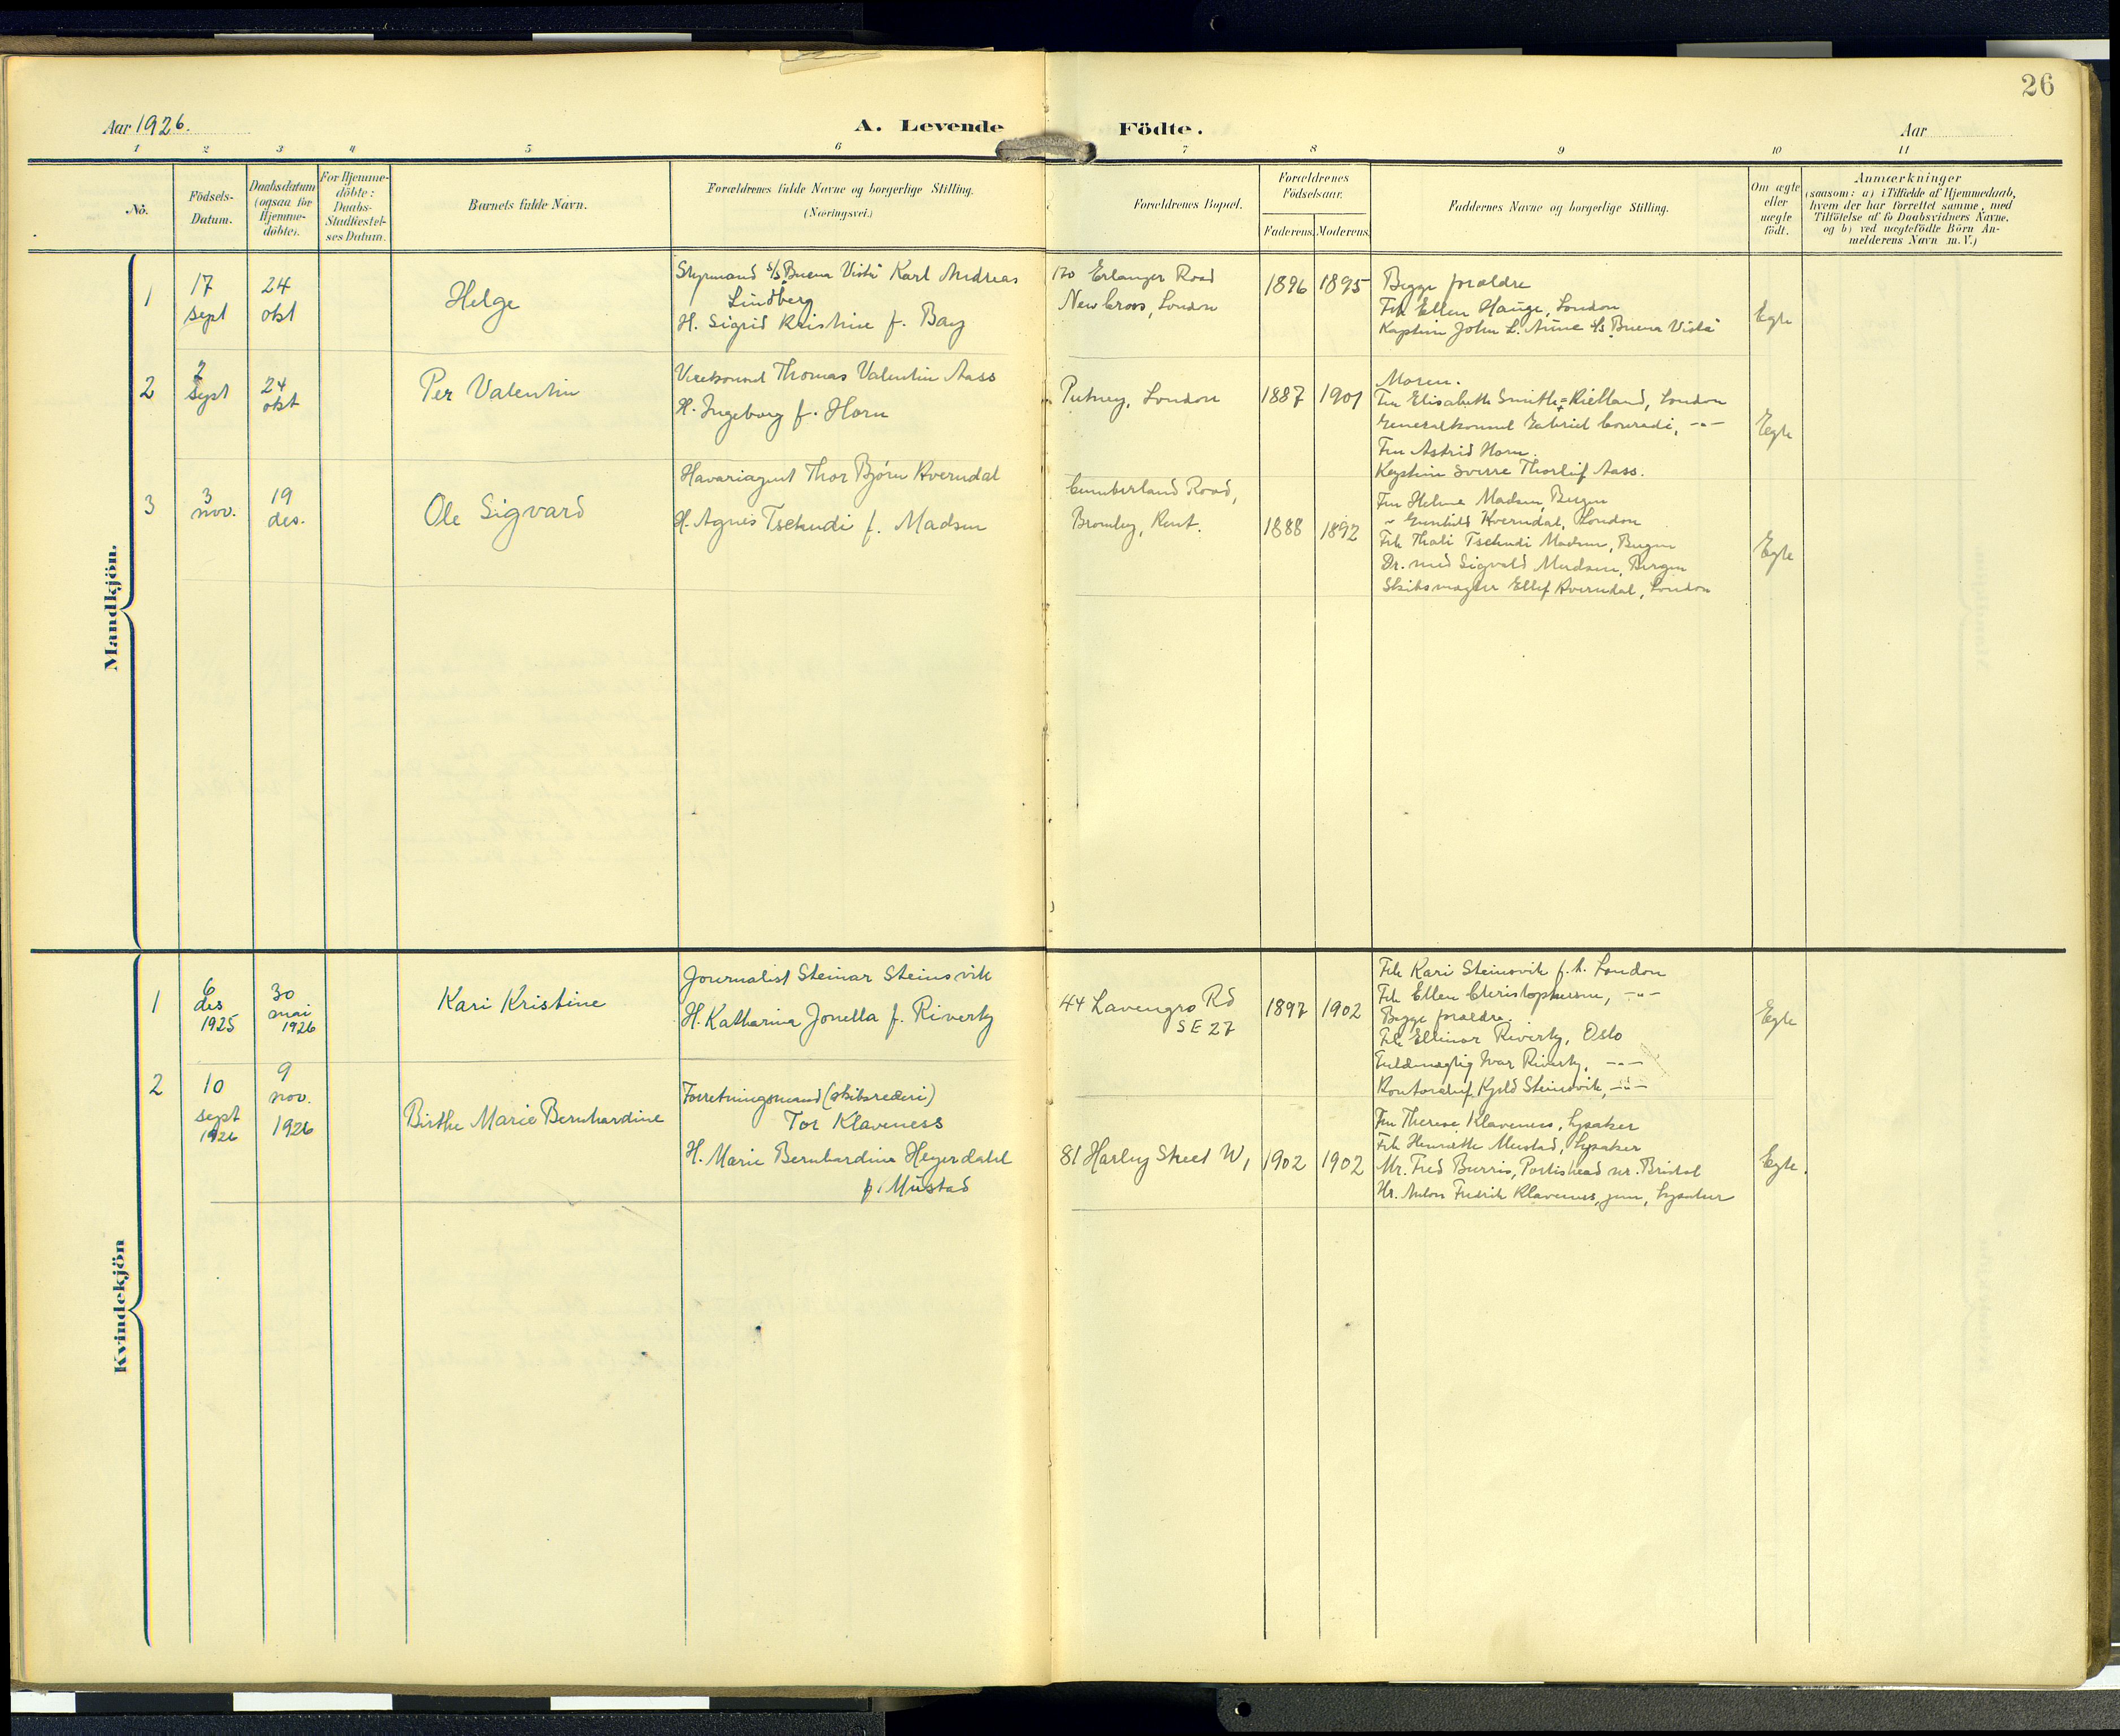 26
Aar 1926.
A. Levende Födte.
Aar
1 2 3 4 5 6 7 8 9 10 11
No.
Födsels-
Datum.
Daabsdatum
(ogsaa for
Hjemme-
döbte).
For Hjemme-
döbte:
Daabs-
Stadfæstel-
ses Datum.
Barnets fulde Navn.
Forældrenes fulde Navne og borgerlige Stilling.
(Næringsvei.)
Forældrenes Bopæl.
Forældrenes
Födselsaar.
Faderens. Moderens.
Faddernes Navne og borgerlige Stilling.
Om ægte
eller
uægte
födt.
Anmærkninger
(saasom: a) i Tilfælde af Hjemmedaab,
hvem der har forrettet samme, med
Tilföielse af to Daabsvidners Navne,
og b) ved uægtefödte Börn An-
melderens Navn m. V.)
Mandkjön.
1
17
sept
24
okt
Helge
Styrmand s/s "Buena Vista" Karl Andreas
Lindberg
H. Sigrid Kristine f. Bay
170 Erlanger Road
New Cross, London
1896 1895
Begge forældre
Frk Ellen Hauge, London
Kaptein John L. Aune s/s "Buena Vista"
Egte
2
2
sept
24
okt
Per Valentin
Visekonsul Thomas Valentin Aass
H. Ingeborg f. Horn
Putney, London
1887 1901
Moren.
Fru Elisabeth Smith=Kielland, London
Generalkonsul Gabriel Conradi, -"-
Fru Astrid Horn.
Kaptein Sverre Thorleif Aass.
Egte
3
3
nov.
19
des.
Ole Sigvard
Havariagent Thor Bjørn Kverndal
H. Agnes Tschudi f. Madsen
Cumberland Road,
Bromley, Kent.
1888 1892
Fru Helene Madsen, Bergen
" Gunhild Kverndal, London
Frk Thali Tschudi Madsen, Bergen
Dr. med Sigvald Madsen, Bergen
Skibsmægler Ellef Kverndal, London
Egte
Kvindekjön
1
6
des
1925
30
mai
1926
Kari Kristine
Journalist Steinar Steinsvik
H. Katharina Jonella f. Riverty
44 Lavengro Rd
SE 27
1897 1902
Frk Kari Steinsvik f.t. London
Frk Ellen Christophersen, -"-
Begge forældre.
Frk Ellinor Riverty, Oslo
Fuldmægtig Ivar Riverty, -"-
Kontorchef Kjeld Steinsvik, -"-
Egte
2
10
sept
1926
9
nov.
1926
Birthe Marie Bernhardine
Forretningsmand (skibsrederi)
Tor Klaveness
H. Marie Bernhardine Heyerdahl
f. Mustad
81 Harley Street W1
1902 1902
Fru Therese Klaveness, Lysaker
Frk Henriette Mustad, Lysaker
Mr. Fred Burris, Portishead nr. Bristol
Hr. Anton Fredrik Klaveness, jun, Lysaker
Egte.